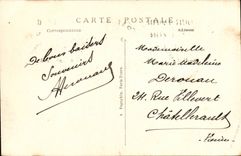 CARTE POSTALE
Correspondance
Adresse
De bons baisers
Souvenirs
Mademoiselle
Marie Madeleine
Derouau
24, Rue Villevert
Châtellerault
Vienne